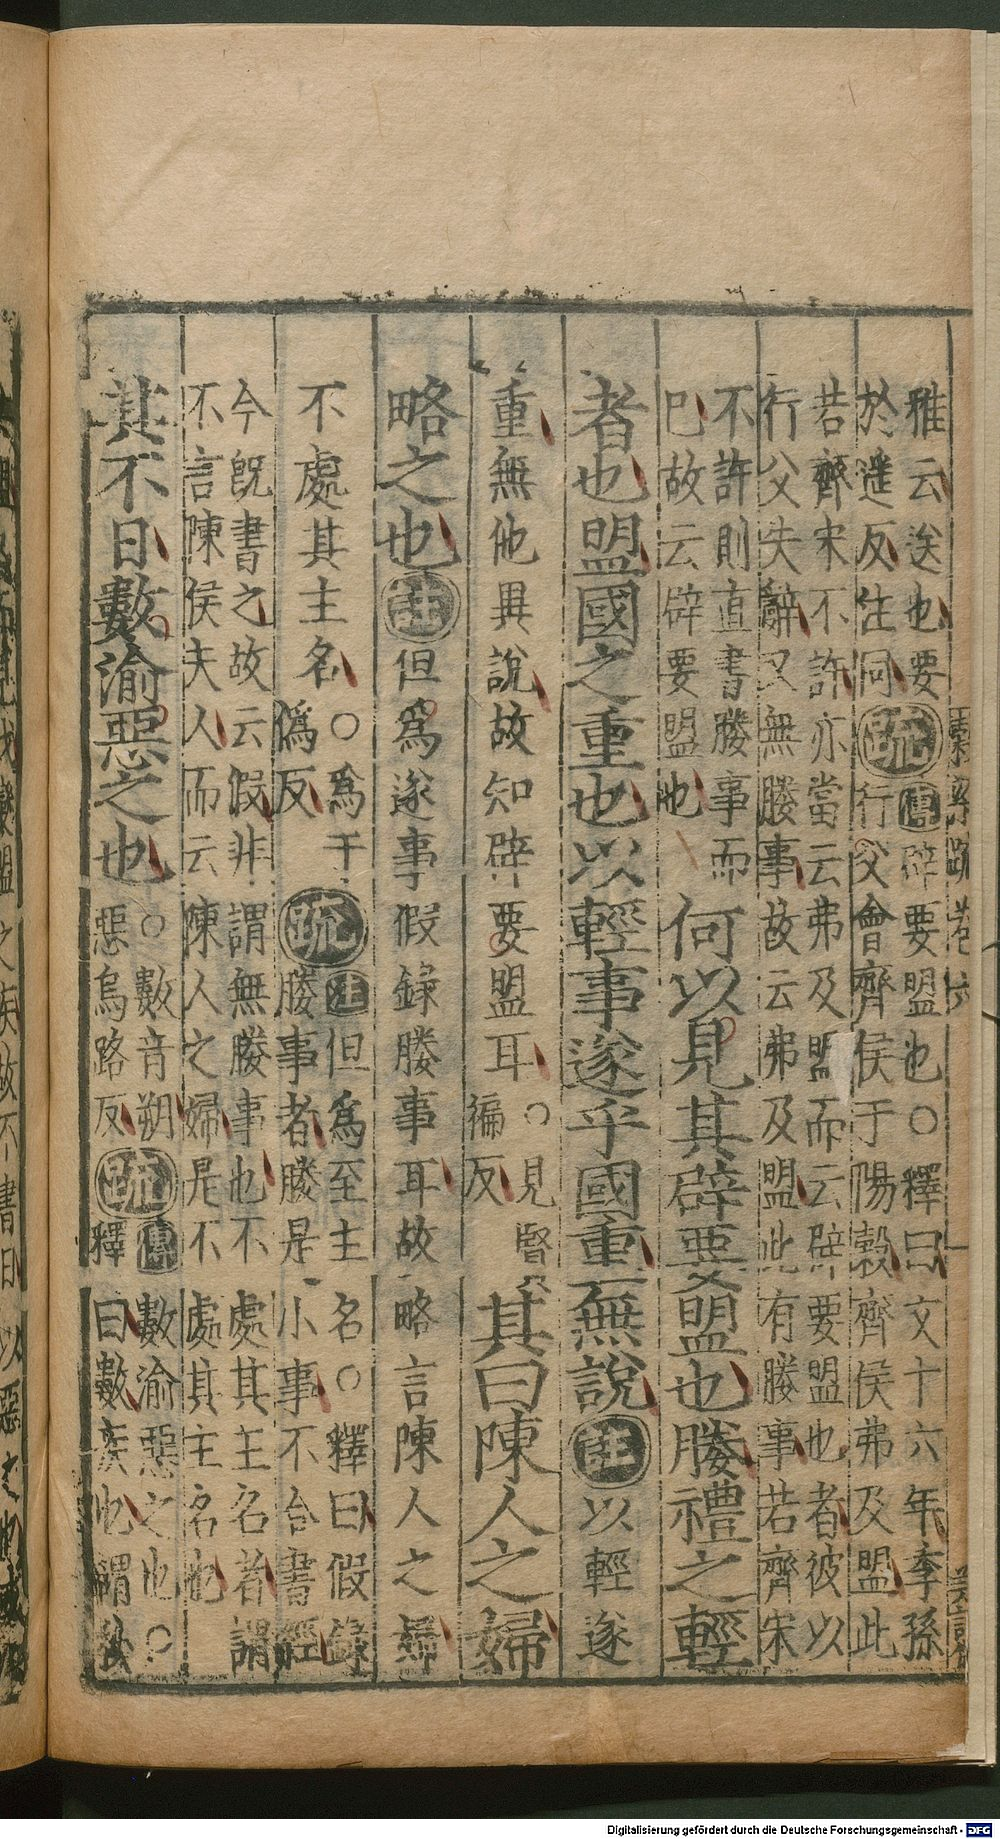 雅云送也要盟也○釋曰文十六年季孫
於遥反注同疏傳辟行父會齊侯于陽榖齊侯弗及盟此
若齊宋不許亦當云弗及盟而云辟要盟也者彼以
行父失辭又無媵事故云弗及盟此有媵事若齊宋
不許則直書媵事而
已故云辟要盟也
何以見其辟要盟也媵禮之輕
者也盟國之重也以輕事遂乎國重無說注以輕遂
重無他異說故知辟要盟耳○見賢徧反其曰陳人之婦
略之也注但為遂事假錄媵事耳故略言陳人之婦
不處其主名○為于偽反疏注但為至主名○釋曰假錄
媵事者媵是小事不合書經
今既書之故云假非謂無媵事也不處其主名者謂
不言陳侯夫人而云陳人之婦是不處其主名也
其不日數渝惡之也○數音朔惡烏路反疏傳數渝惡之也○
釋曰數疾也謂秋
穀梁疏卷六
Digitalisierung gefördert durch die Deutsche Forschungsgemeinschaft - DFG